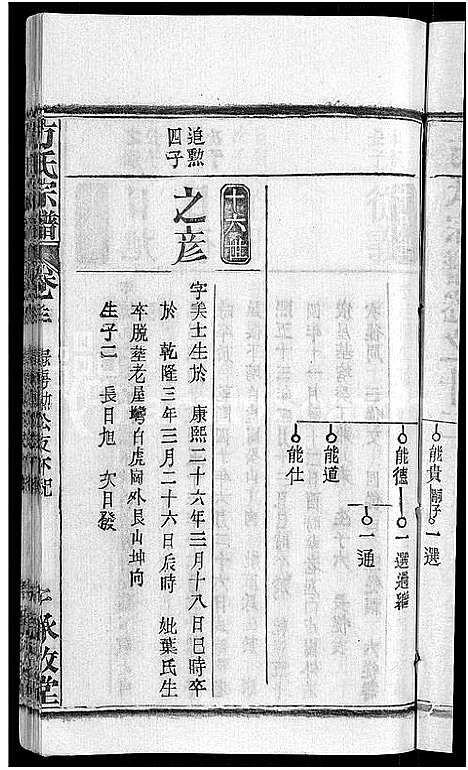 能貴 嗣子 一選
能德 一選過繼
一通
能道
能仕
十六世
追勲四子
之彦
字美士生於 康熙二十六年三月十八日巳時卒
於 乾隆三年三月二十六日辰時 妣葉氏生
卒脱塟老屋塆白虎岡外艮山坤向
生子二 長日旭 次日發
方氏宗譜
卷之三
敦堂